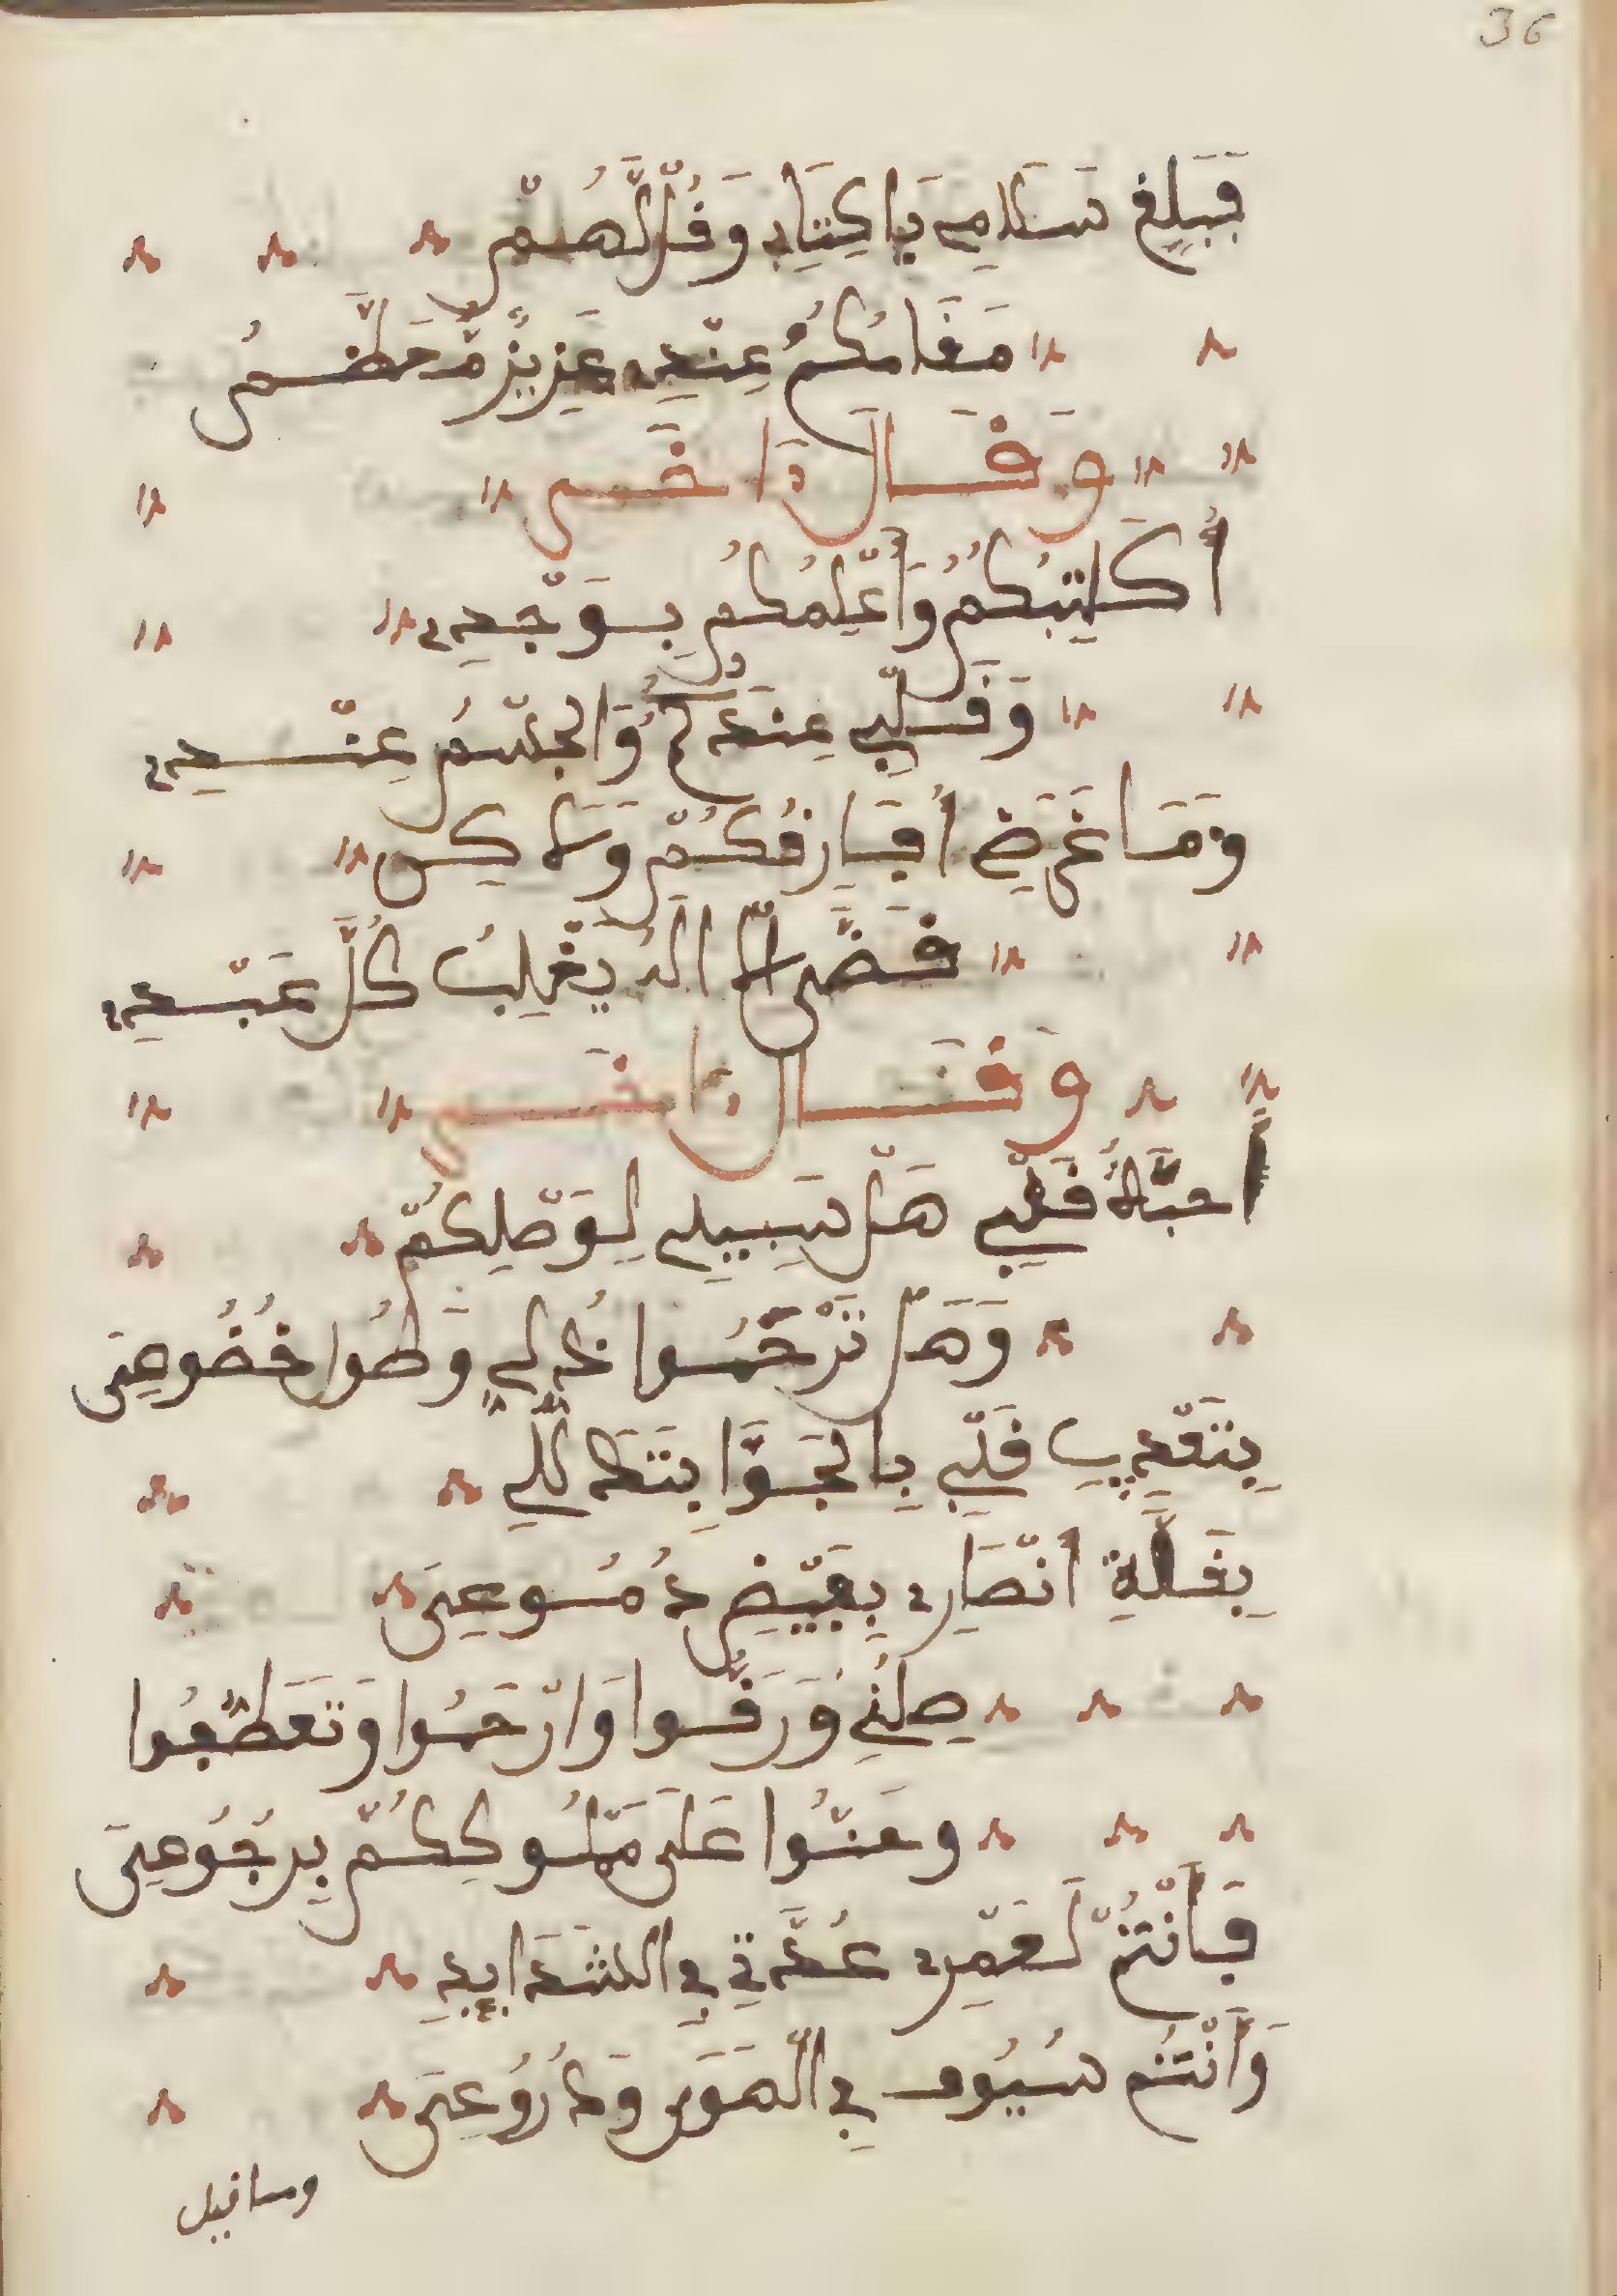 36
فَبَلِّغْ سَلَامِي يَا كِتَابِ وَقُلْ لَّهُمْ
مَقَامُكُمُ عِنْدِي عَزِيزٌ مُّعَظَّمُ
وَقَالَ ءَاخَرُ
أُكَاتِبُكُمْ وَأُعْلِمُكُمْ بِوَجْدِي
وَقَلْبِي عِنْدَكُمْ وَالْجِسْمُ عِنْدِي
وَمَا غَرَضِي أُفَارِقُكُمْ وَلَاكِنْ
قَضَى اللَّهُ الَّذِي يَغْلِبُ كُلَّ عَبْدِي
وَقَالَ ءَاخَرُ
أَحِبَّةُ قَلْبِي هَلْ سَبِيلِي لِوَصْلِكُمْ
وَهَلْ تَرْحَمُوا ذُلِّي وَطُولَ خُضُوعِي
بِتَعْذِيبِ قَلْبِي بِالْجَوَا بِتَذَلُّلِي
بِقِلَّةِ أَنْصَارِي بِفَيْضِ دُمُوعِي
صِلُنِي وَرِقُّوا وَارْحَمُوا وَتَعَطَّفُوا
وَمُنُّوا عَلَى مَمْلُوكِكُمْ بِرُجُوعِي
فَأَنْتُمْ لَعَمْرِي عُدَّتِي فِي الشَّدَايِدِ
وَأَنْتُمْ سُيُوفِ فِي الْهَوَى وَدُرُوعِي
وسافيل